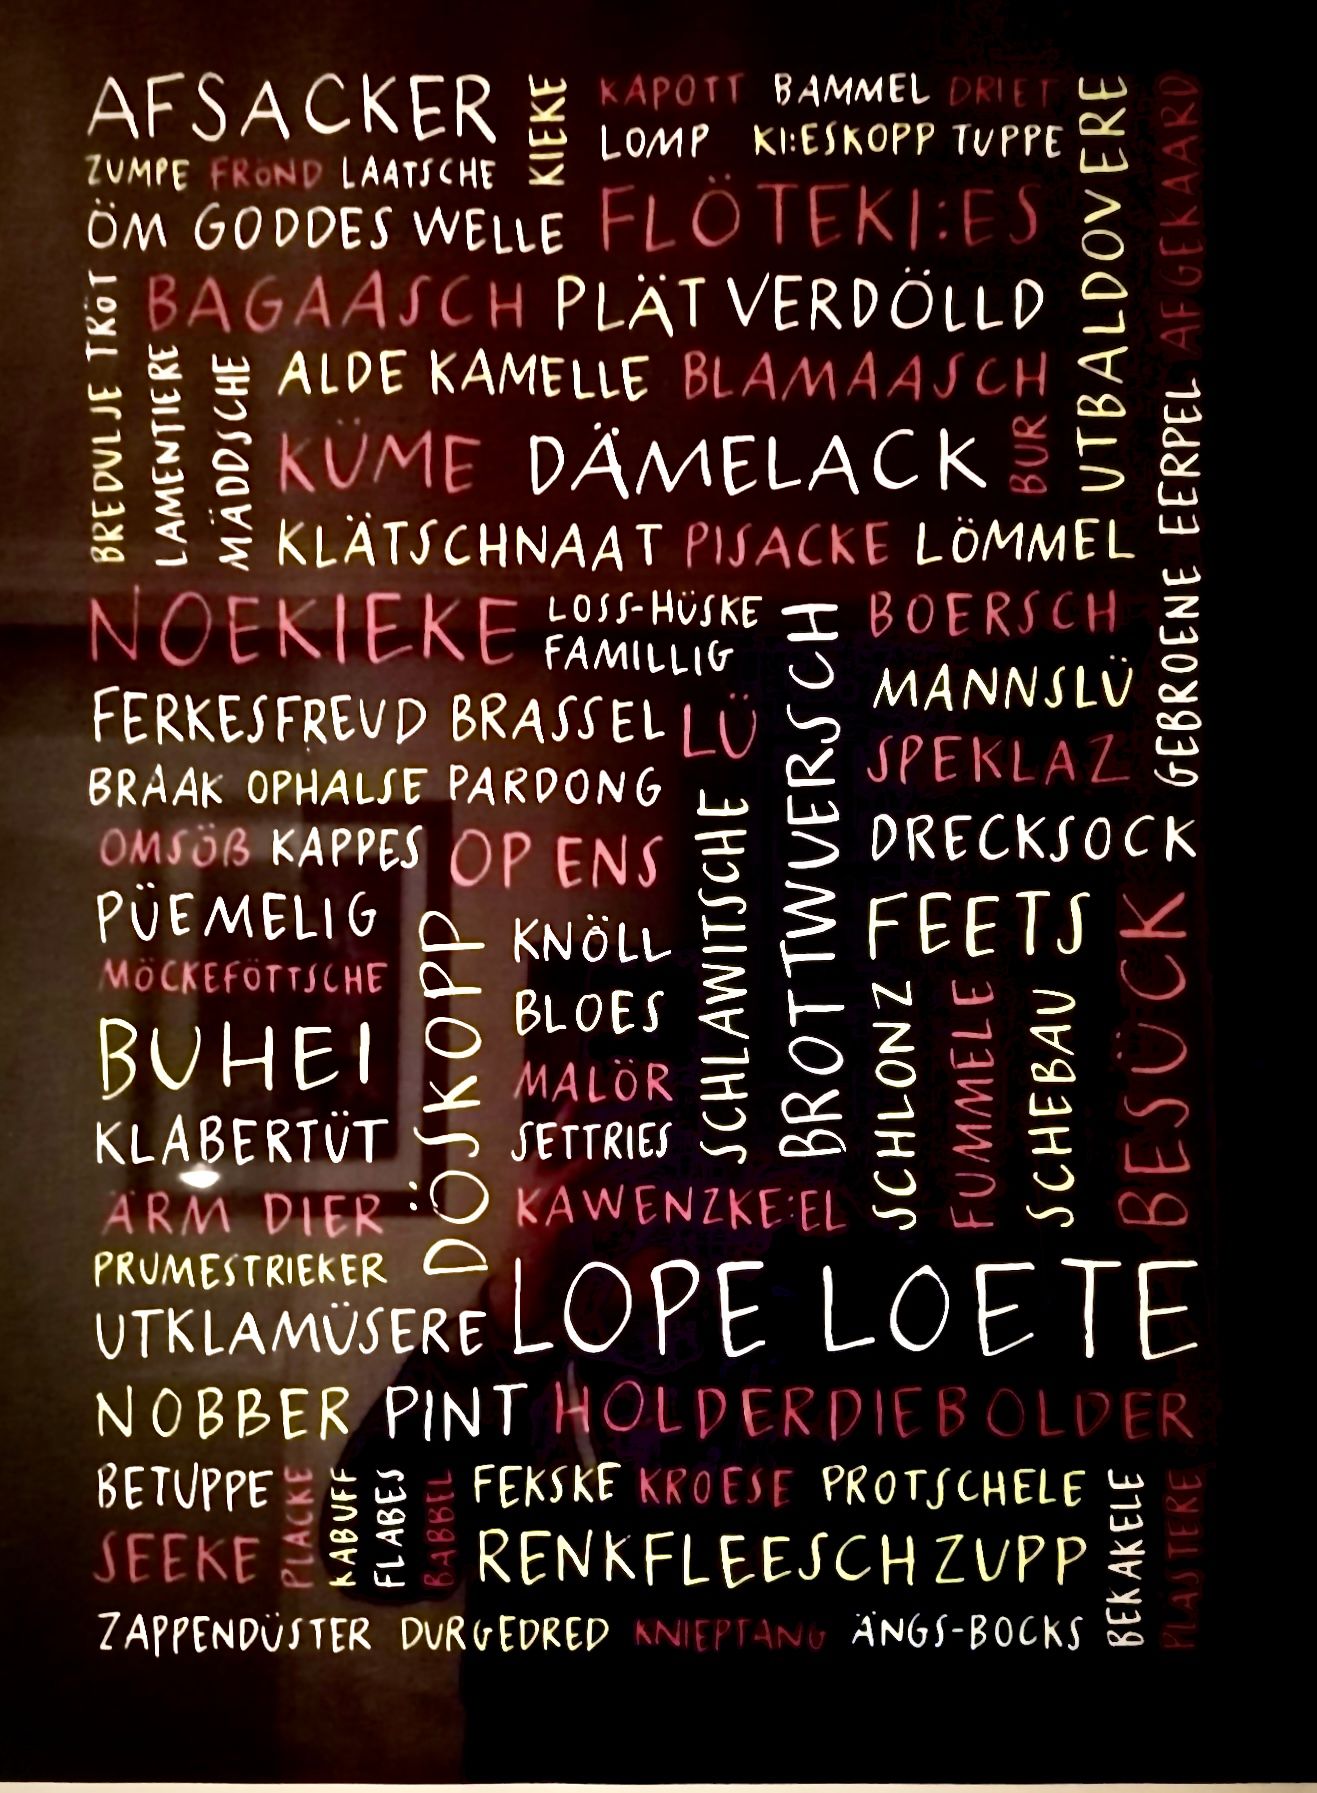 AFSACKER KIEKE KAPOTT BAMMEL DRIET
LOMP KI:ESKOPP TUPPE
ZUMPE FRÖND LAATSCHE
ÖM GODDES WELLE FLÖTEKI:ES
UTBALDOVERE
AFGEKAARD
BREDULJE TRÖT
BAGAASCH PLÄT VERDÖLLD
LAMENTIERE
MÄDDSCHE
ALDE KAMELLE BLAMAASCH
KÜME DÄMELACK BUR
KLÄTSCHNAAT PISACKE LÖMMEL
GEBROENE EERPEL
NOEKIEKE LOSS-HÜSKE
FAMILLIG
BROTTWVERSCH
BOERSCH
MANNSLÜ
FERKESFREUD BRASSEL LÜ
SPEKLAZ
BRAAK OPHALSE PARDONG
SCHLAWITSCHE
DRECKSOCK
OMSÖß KAPPES OP ENS
FEETS
BESÜCK
PÜEMELIG
DÖSKOPP
KNÖLL
MÖCKEFÖTTSCHE
BLOES
SCHLONZ
FUMMELE
SCHEBAU
BUHEI
MALÖR
KLABERTÜT
SETTRIES
ÄRM DIER KAWENZKE:EL
PRUMESTRIEKER
UTKLAMÜSERE LOPE LOETE
NOBBER PINT HOLDERDIEBOLDER
BETUPPE
PLACKE
KABUFF
FLABES
BABBEL
FEKSKE KROESE PROTSCHELE
BEKAKELE
PLASTERE
SEEKE RENKFLEESCH ZUPP
ZAPPENDÜSTER DURGEDRED KNIEPTANG ÄNGS-BOCKS